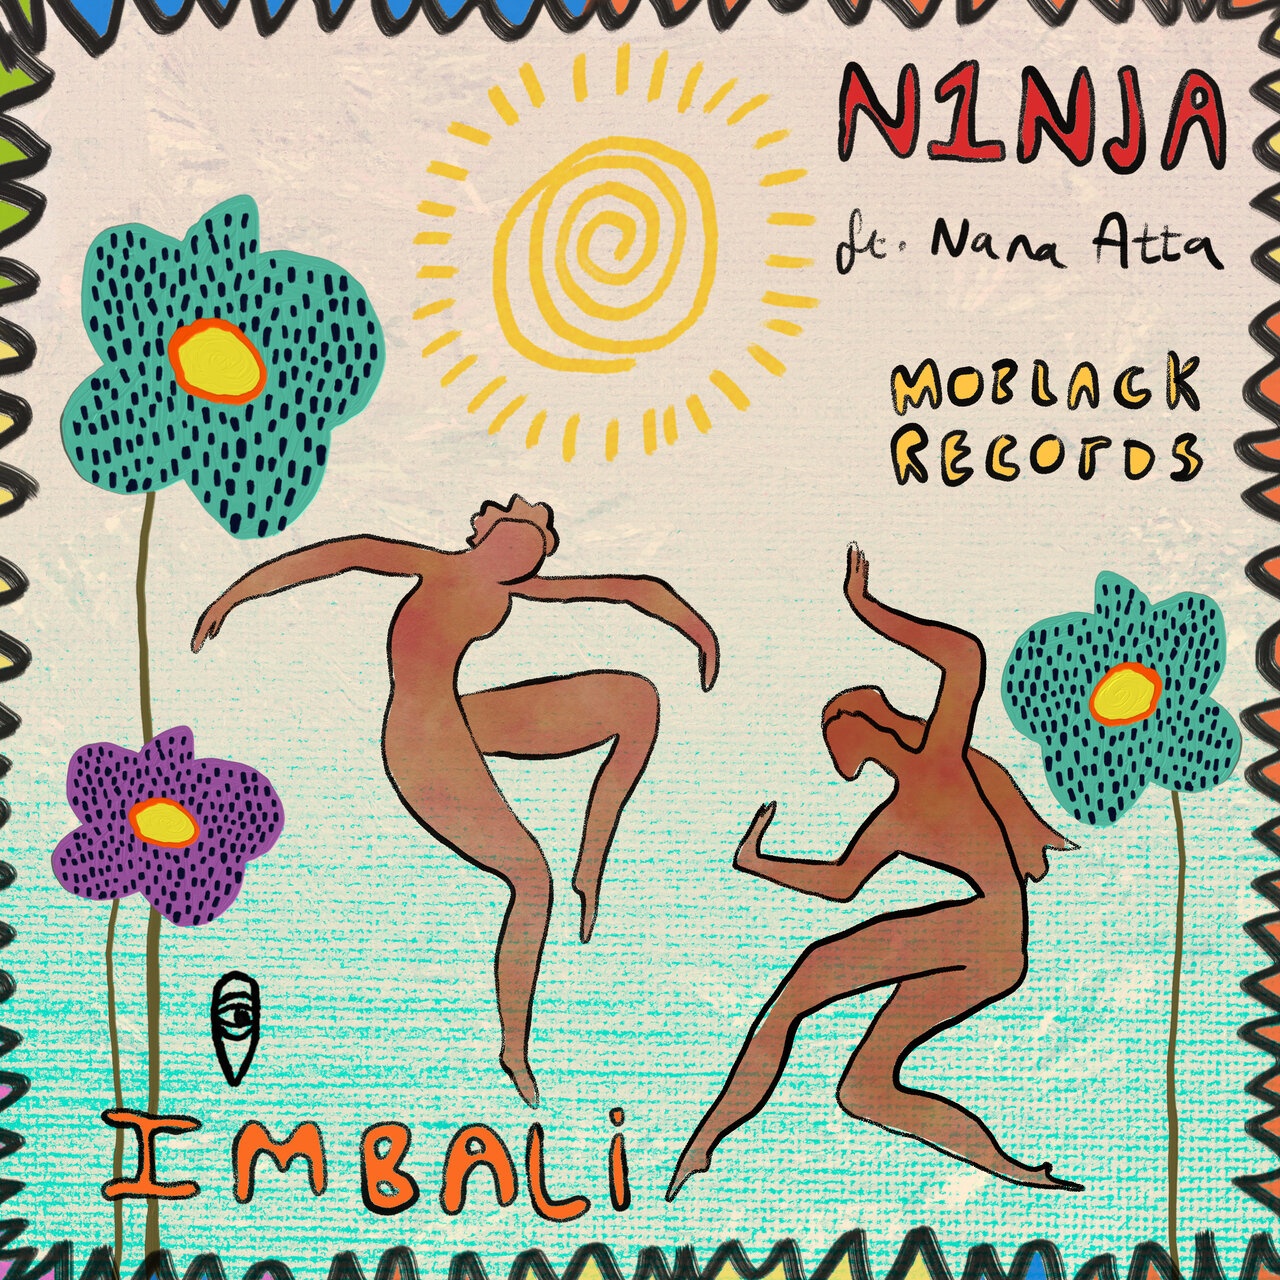 N1NJA
ft. Nana Atta
MOBLACK
RECORDS
IMBALi